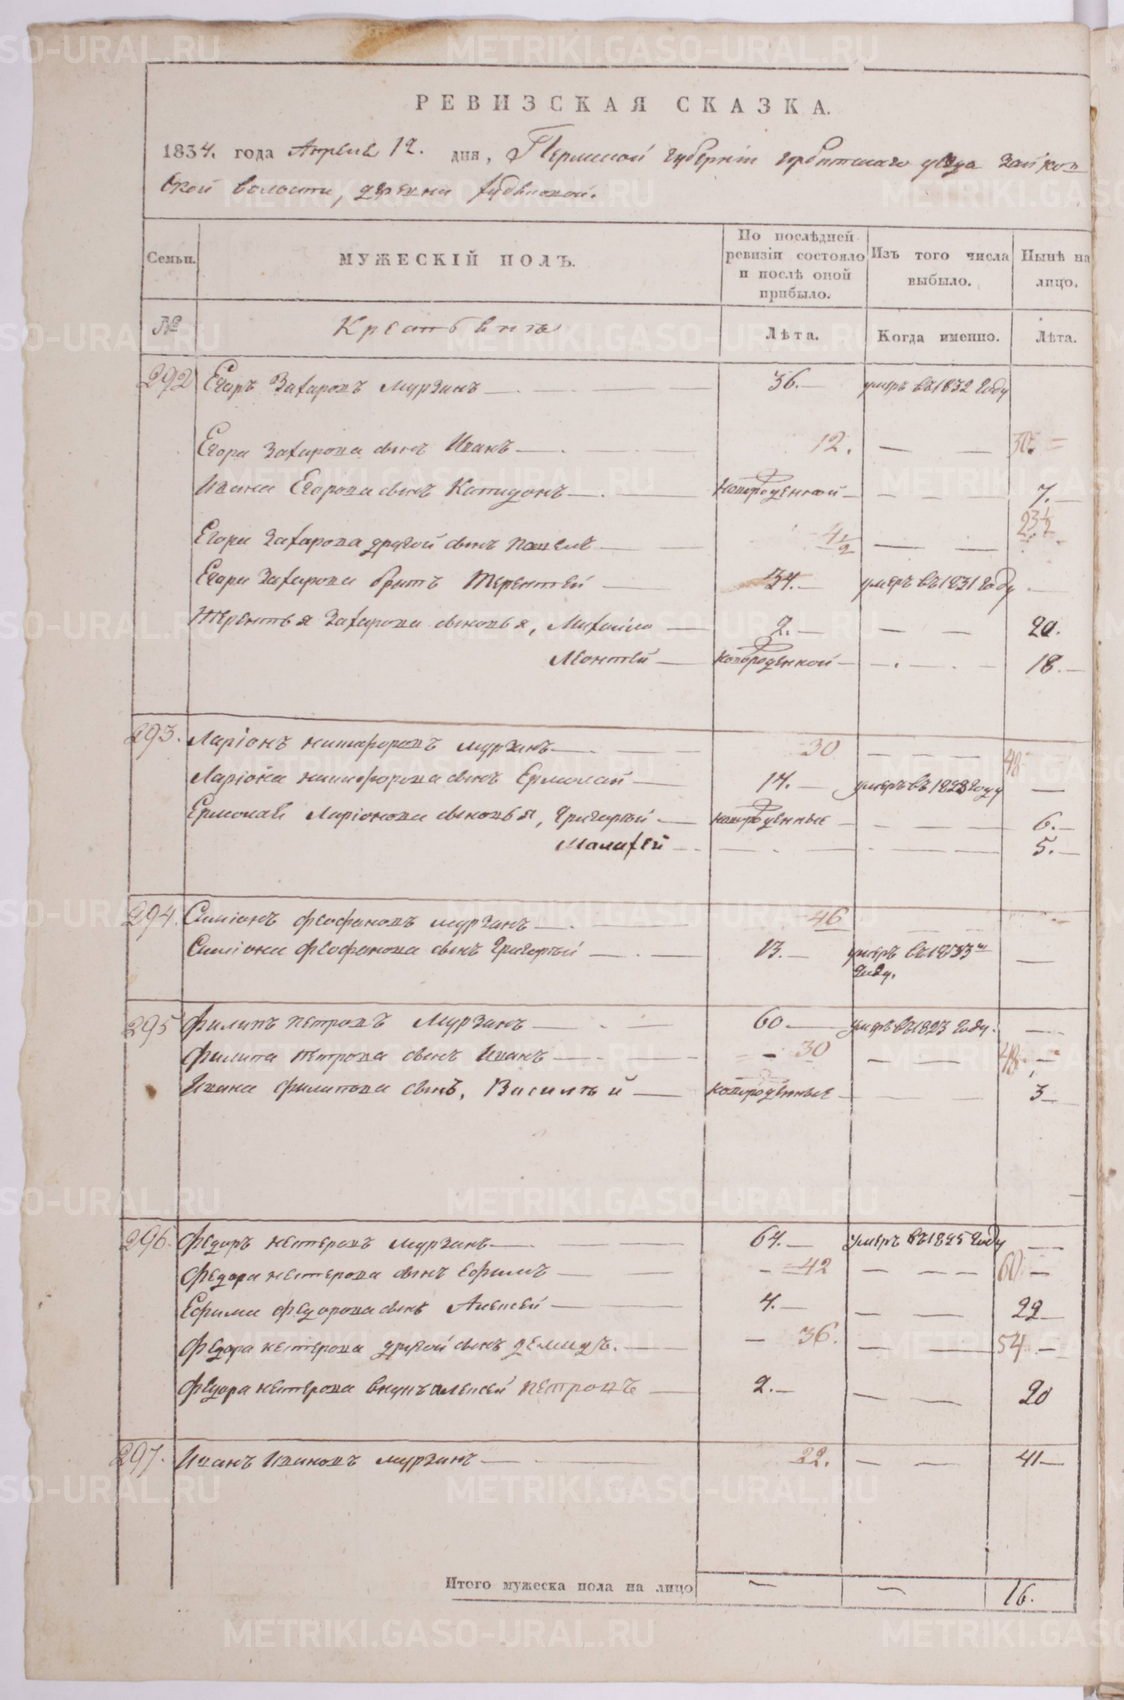 РЕВИЗСКАЯ СКАЗКА.
1834. года Апреля 12. дня, Пермской губернiи Ирбитскаго уезда Зайков
ской волости, деревни
Семьи. МУЖЕСКIЙ ПОЛЪ. По послѣдней ревизiи состояло и послѣ оной прибыло. Изъ того числа выбыло. Нынѣ на лицо.
№ Крестьянъ Лѣта. Когда именно. Лѣта.
292 Егоръ Захаровъ Мурзинъ 36. умеръ въ 1832 году
Егора Захарова сынъ Иванъ 12. 30.
Ивана Егорова сынъ Капидонъ новорожденной 7.
Егора Захарова другой сынъ Павелъ 4 1/2 23 1/2
Егора Захарова братъ Терентей 34. умеръ въ 1831 году
Терентья Захарова сыновья, Михайло 2. 20.
Леонтей новорожденной 18.
293. Ларiонъ Никифоровъ Мурзинъ 30 48
Ларiона Никифорова сынъ Ермолай 14. умеръ въ 1828 году
Ермолая Ларiонова сыновья, Григорей новорожденные 6.
Малафей 5.
294. Симiонъ Феофановъ Мурзинъ 46
Симiона Феофанова сынъ Григорьй 13. умеръ въ 1833м году.
295 Филипъ Петровъ Мурзинъ 60 умеръ въ 1823 году.
Филипа Петрова сынъ Иванъ 30 48.
Ивана Филипова сынъ, Василъй новорожденные 3
296. Федоръ Нестеровъ Мурзинъ 64. умеръ въ 1825 году
Федора Нестерова сынъ Ефимъ 42 60
Ефима Федорова сынъ Алексей 4. 22
Федора Нестерова другой сынъ Демидъ. 36. 54
Федора Нестерова внукъ Алексей Петровъ 2. 20
297. Иванъ Ивановъ Мурзинъ 22. 41
Итого мужеска пола на лицо 16.
METRIKI.GASO-URAL.RU